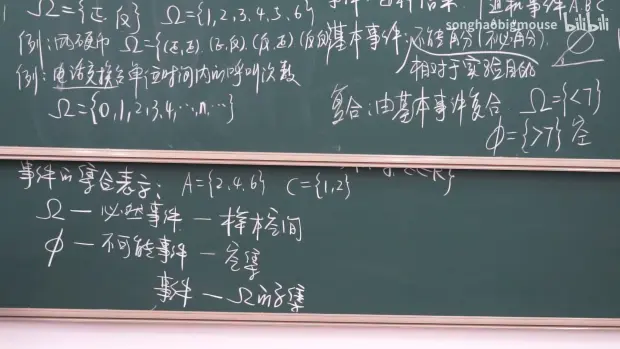 Ω={正,反} Ω={1,2,3,4,5,6}
例:两硬币 Ω={(正,正),(正,反),(反,正),(反,反)}
例:电话交换台单位时间内的呼叫次数
Ω={0,1,2,3,4,…,n,…}
随机事件A.B.C
基本事件:不能再分(不必再分) Φ
相对于实验目的
复合:由基本事件复合 Ω={<7}
Φ={>7} 空
事件的集合表示: A={2,4,6} C={1,2}
Ω — 必然事件 — 样本空间
Φ — 不可能事件 — 空集
事件 — Ω的子集
songhaobigmouse
bilibili